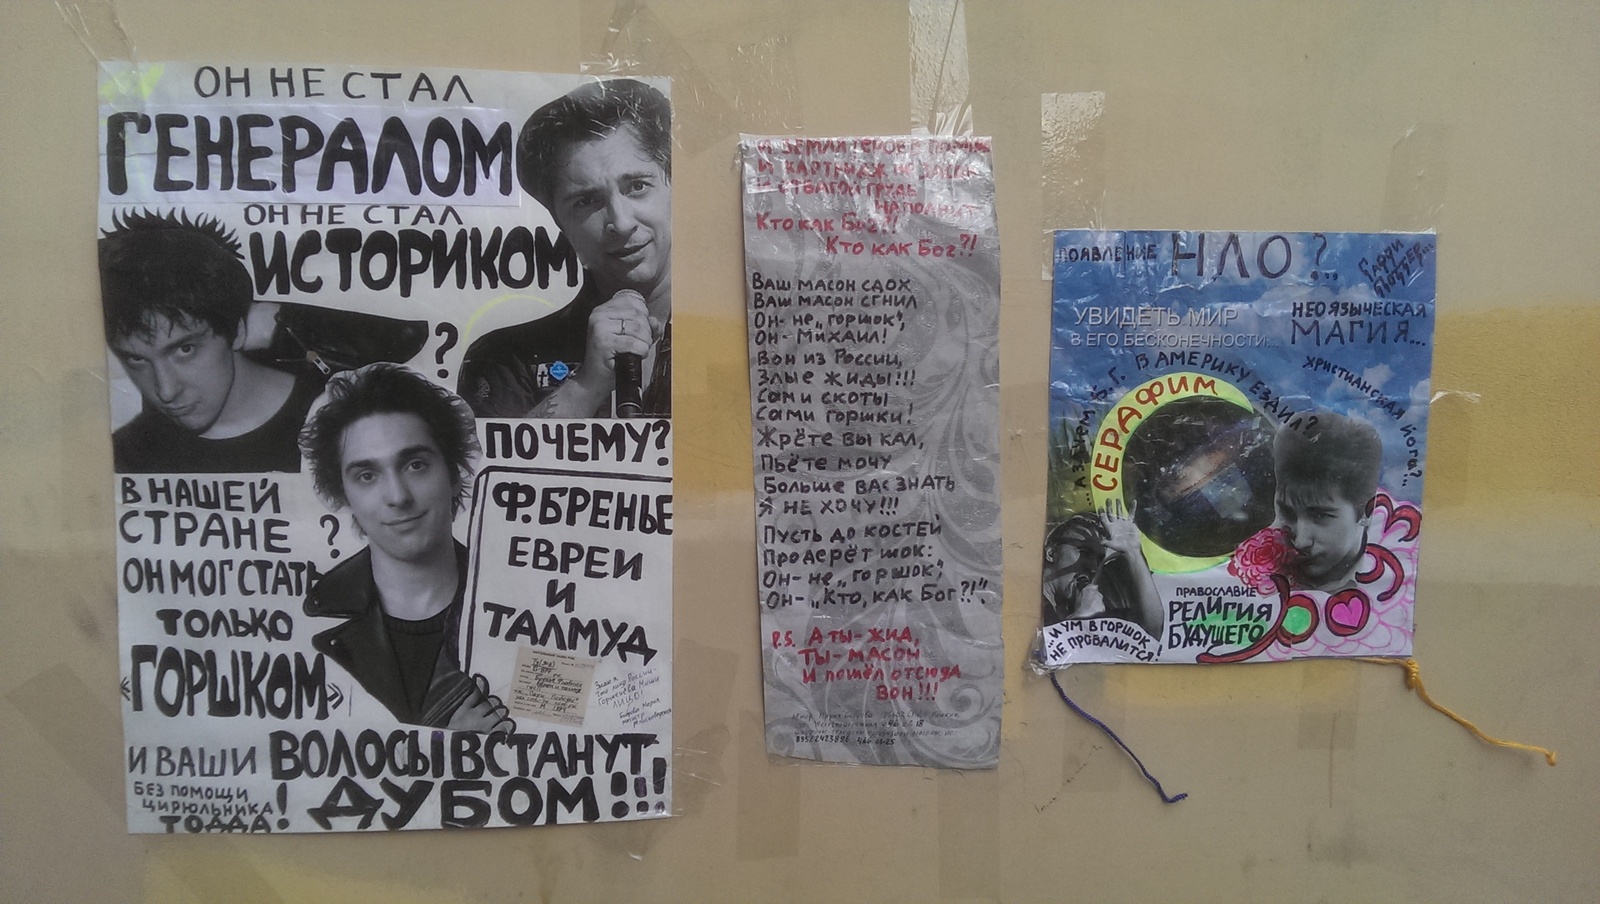 ОН НЕ СТАЛ
ГЕНЕРАЛОМ
ОН НЕ СТАЛ
ИСТОРИКОМ
?
ПОЧЕМУ?
В НАШЕЙ
СТРАНЕ ?
ОН МОГ СТАТЬ
ТОЛЬКО
"ГОРШКОМ"
Ф. БРЕНЬЕ
ЕВРЕИ
И
ТАЛМУД
И ВАШИ ВОЛОСЫ ВСТАНУТ
ДУБОМ!!!
БЕЗ ПОМОЩИ
ЦИРЮЛЬНИКА
ТОДДА!
И ЗЕМЛИ
И КАРТРИДЖ
И ОТВАГОЙ ГРУДЬ
НАПОЛНИТ
КТО КАК БОГ?!
КТО КАК БОГ?!
ВАШ МАСОН СДОХ
ВАШ МАСОН СГНИЛ
ОН- НЕ „ГОРШОК",
ОН- МИХАИЛ!
ВОН ИЗ РОССИИ,
ЗЛЫЕ ЖИДЫ!!!
САМИ СКОТЫ
САМИ ГОРШКИ!
ЖРЁТЕ ВЫ КАЛ,
ПЬЁТЕ МОЧУ
БОЛЬШЕ ВАС ЗНАТЬ
Я НЕ ХОЧУ!!!
ПУСТЬ ДО КОСТЕЙ
ПРОДЕРЁТ ШОК:
ОН- НЕ „ГОРШОК",
ОН- „КТО, КАК БОГ?!".
P.S. А ТЫ- ЖИД,
ТЫ- МАСОН
И ПОШЁЛ ОТСЮДА
ВОН!!!
ПОЯВЛЕНИЕ НЛО?..
ГАРРИ
ПОТТЕР...
УВИДЕТЬ МИР
В ЕГО БЕСКОНЕЧНОСТИ...
НЕОЯЗЫЧЕСКАЯ
МАГИЯ...
ХРИСТИАНСКАЯ ЙОГА?...
...А ЗАЧЕМ Б.Г. В АМЕРИКУ ЕЗДИЛ?
СЕРАФИМ
ПРАВОСЛАВИЕ
РЕЛИГИЯ
БУДУЩЕГО
...И УМ В ГОРШОК
НЕ ПРОВАЛИТСЯ!